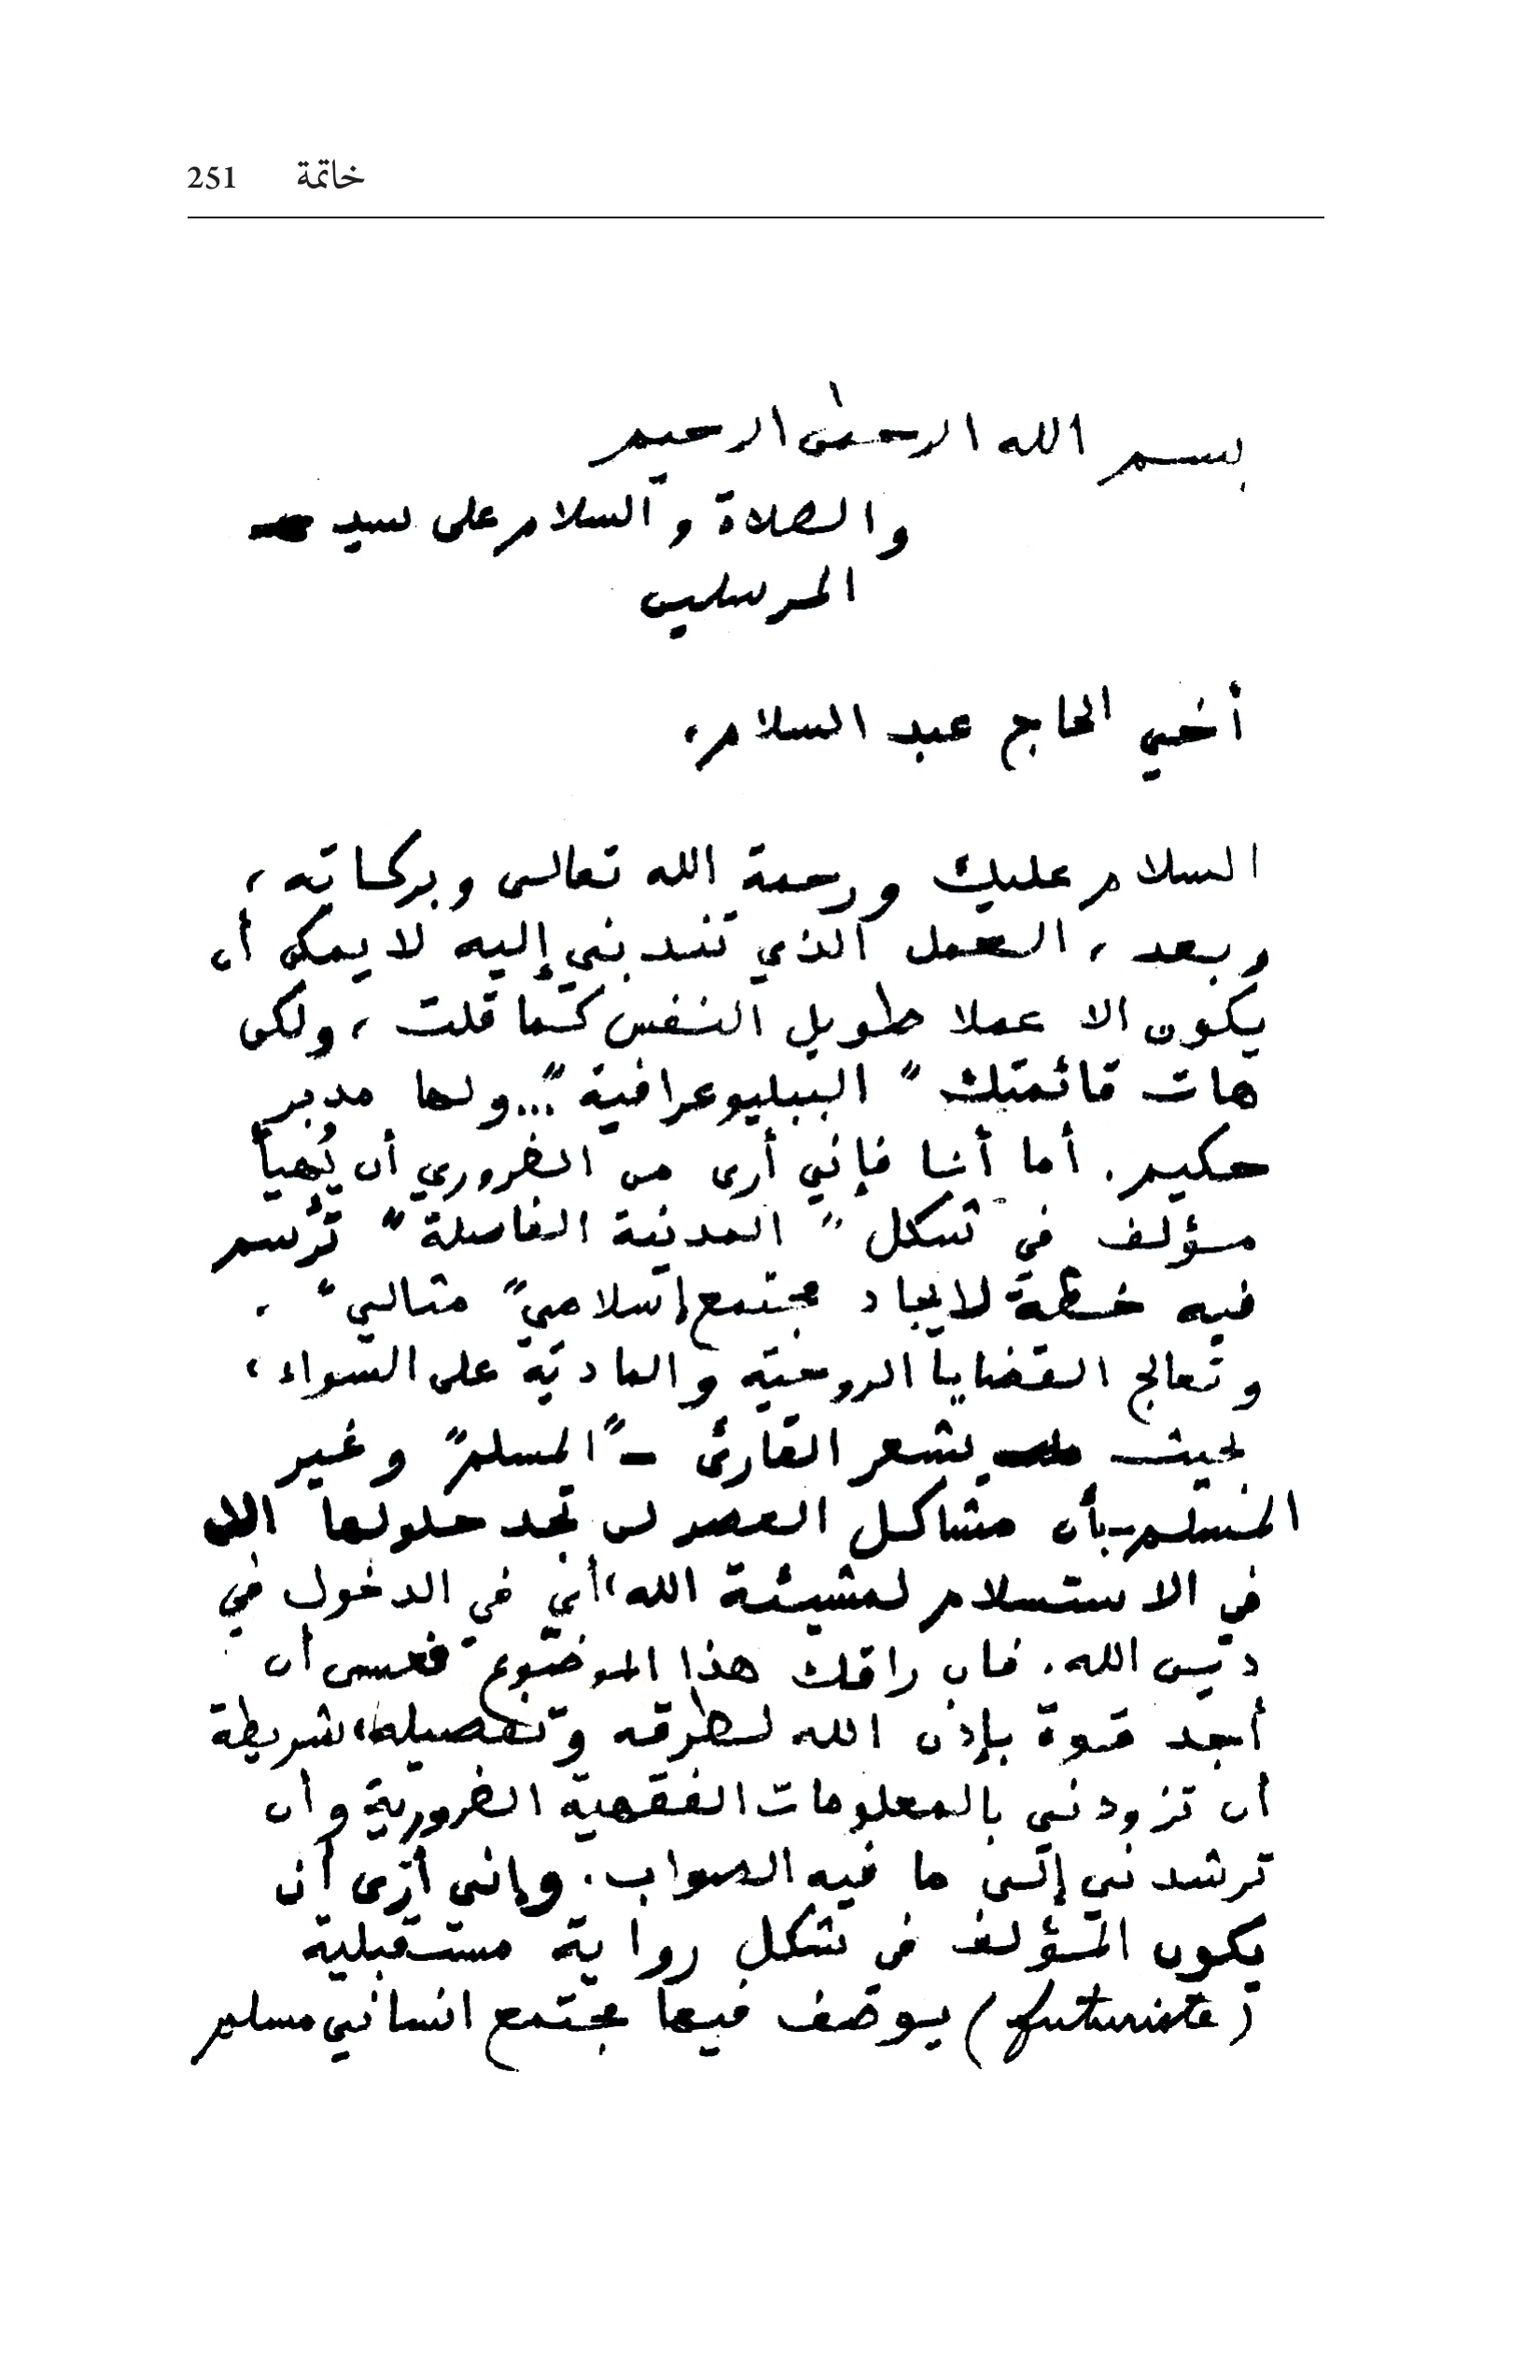 خاتمة 251
بسم الله الرحمٰن الرحيم
والصلاة والسلام على سيد
المرسلين
أخي الحاج عبد السلام،
السلام عليك ورحمة الله تعالى وبركاته،
وبعد، العمل الذي تندبني إليه لا يمكن أن
يكون الا عملا طويل النفس كما قلت، ولكن
هات قائمتك "الببليوغرافية"... ولها مدبر
حكيم. أما أنا فإني أرى من الضروري أن يُهيأ
مؤلف في شكل "المدينة الفاضلة" تُرسم
فيه خطة لايجاد مجتمع إسلامي "مثالي".
وتعالج القضايا الروحية والمادية على السواء،
بحيث يشعر القارئ - "المسلم" وغير
المسلم - بأن مشاكل العصر لن تجد حلولها الا
في الاستسلام لمشيئة الله، أي في الدخول في
دين الله. فان راقك هذا الموضوع فعسى أن
أجد قوة بإذن الله لطرقه وتفصيله، شريطة
أن تزودني بالمعلومات الفقهية الضرورية وأن
ترشدني إلى ما فيه الصواب. وإني أرى أن
يكون المؤلف في شكل رواية مستقبلية
(futuriste) يوصف فيها مجتمع انساني مسلم